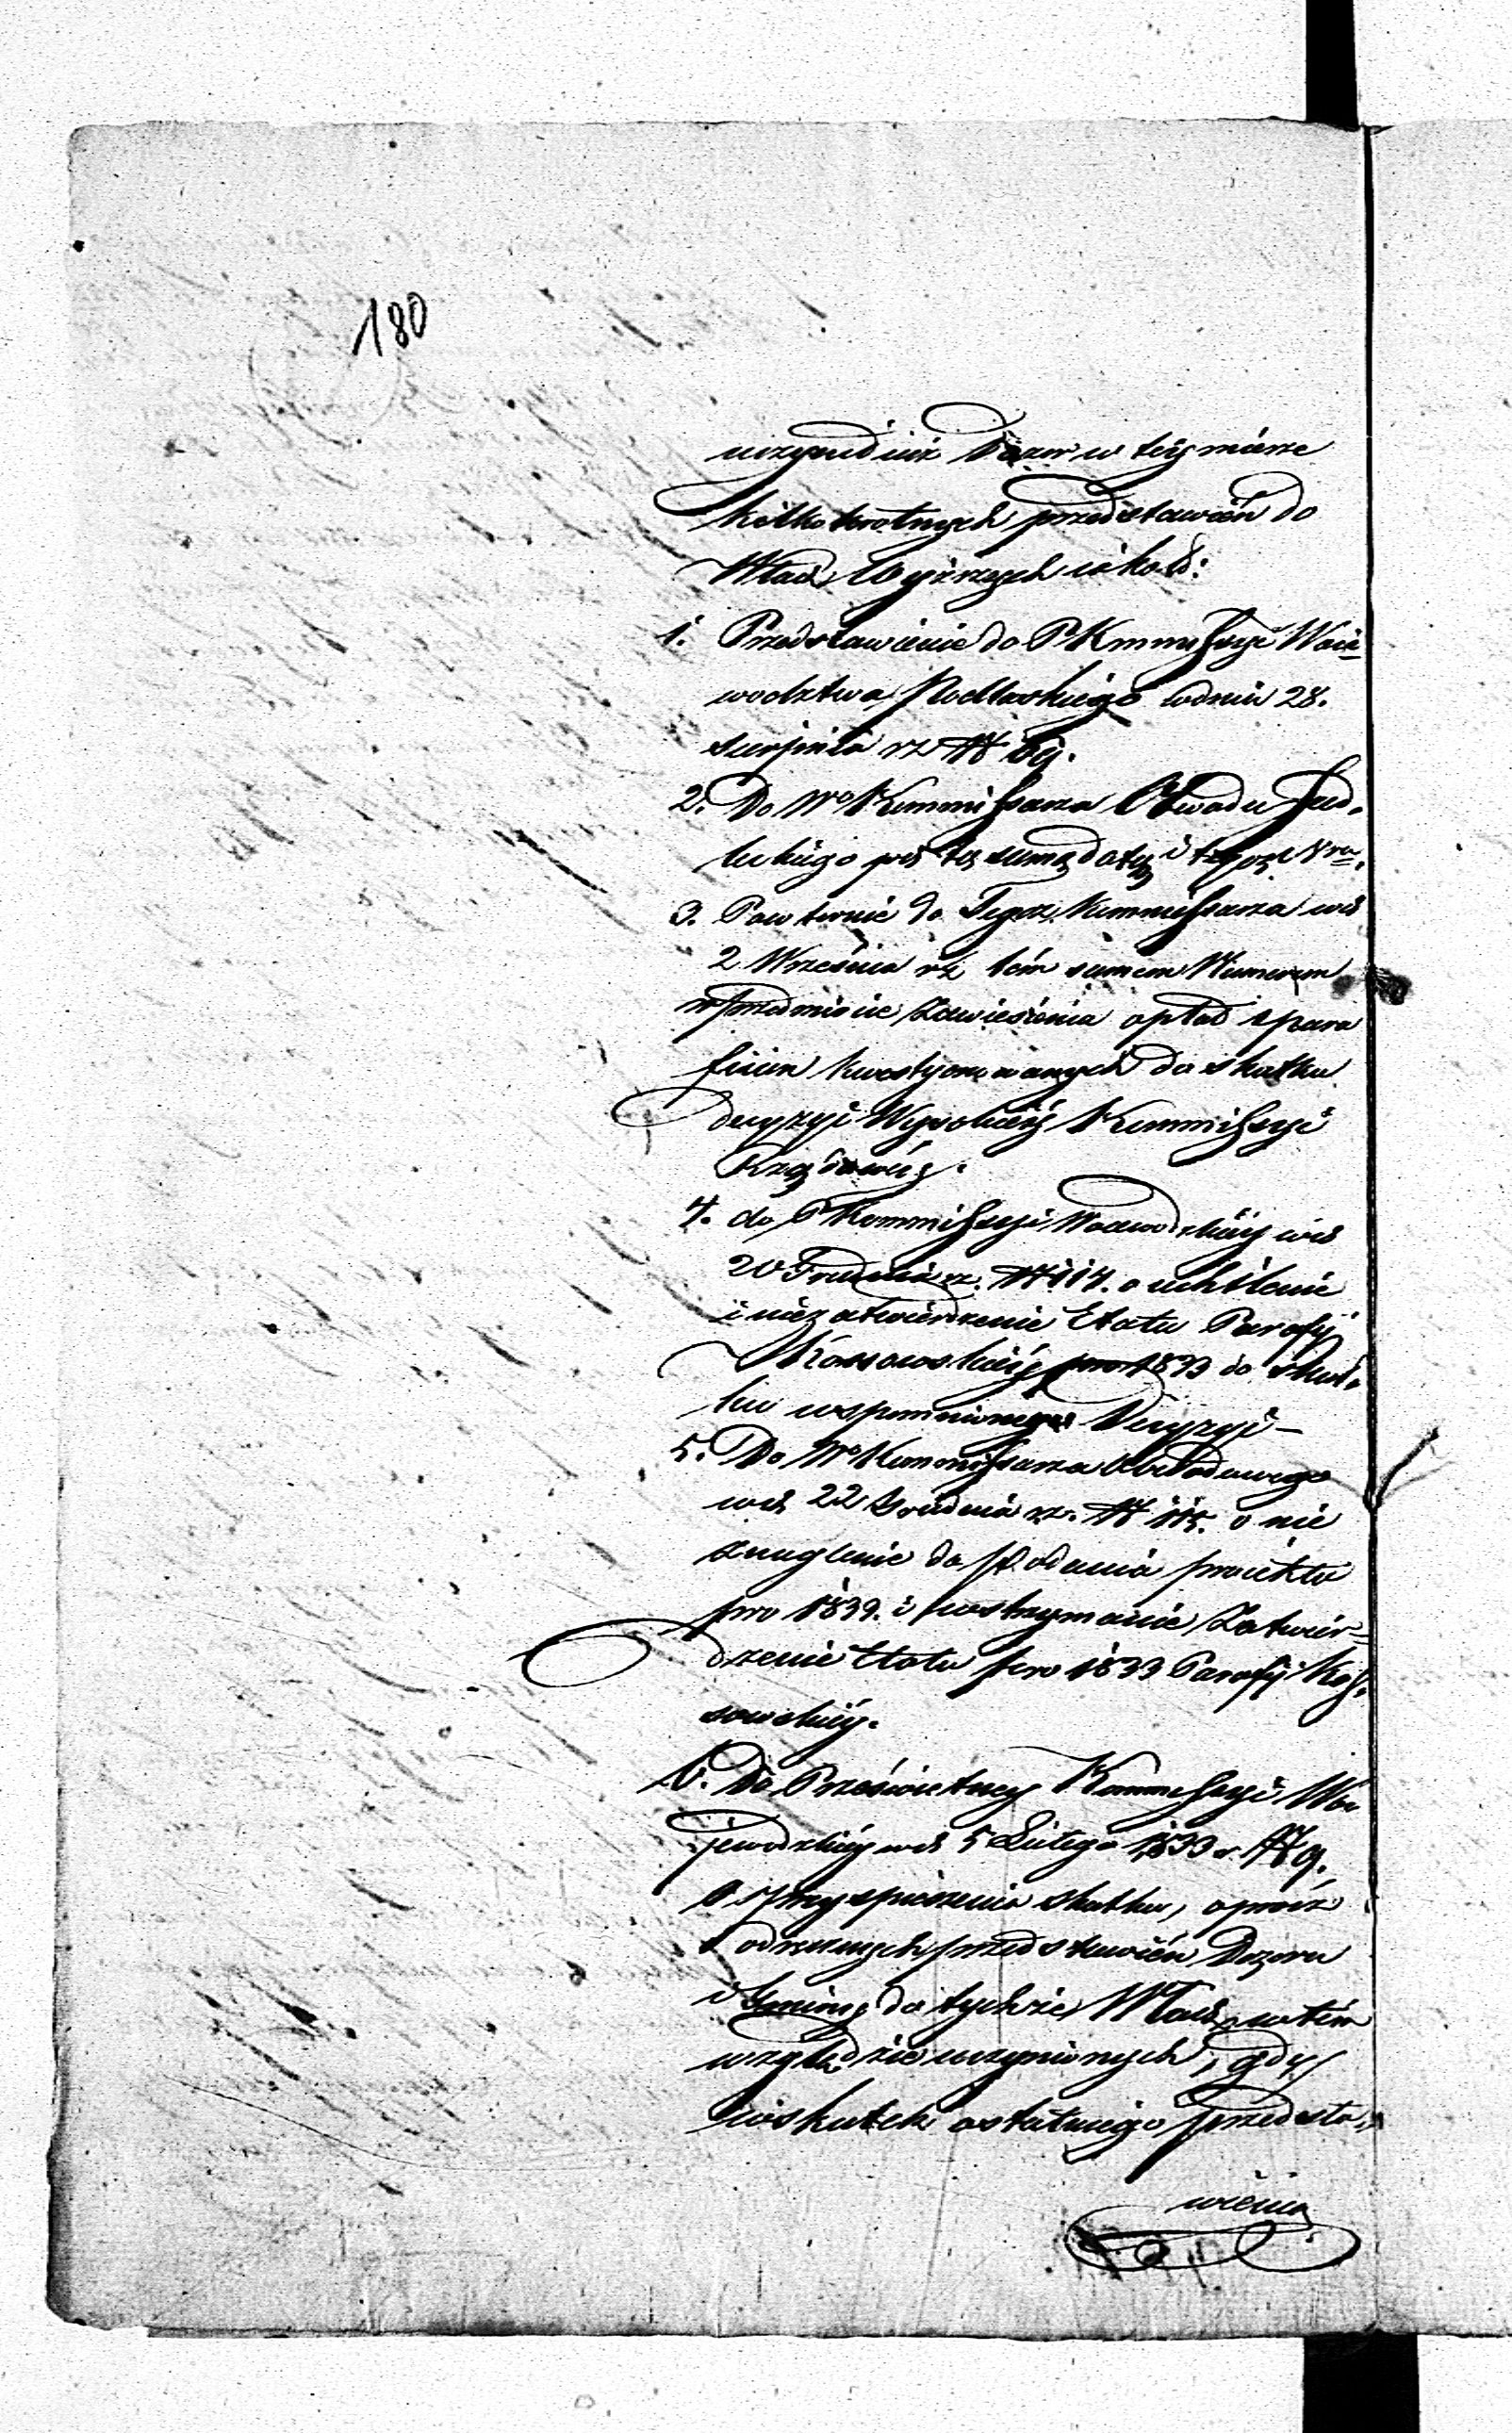 180
uczynił już Dozor w tey mierze
kilkokrotnych przedstawień do
Władz Wyższych iako to:
1. Przedstawienie do P. Kommissyi Woie=
wodztwa Podlaskiego dnia 28.
sierpnia rz № 69.
2. Do Wo Kommissarza Obwodu Sied=
leckiego pod tą samą datą i tegoż Nra.
3. Powtornie do Tegoż Kommissarza pod
2 Września rz tém samem Numerem
w przedmiocie zawieszenia opłat z para
fian kwestyonowanych do skutku
decyzyi Wysokiéy Kommissyi
Rządowéy.
4. do P Kommissyi Woiewodzkiéy pod
20 Grudnia rz. № 114. o uchilenie
i niezatwierdzenie Etatu Parafij
Kossowskiéy pro 1833 do skut=
ku wspomnionéy Decyzyi –
5. Do Wo Kommissarza Obwodowego
pod 22 Grudnia rz. № 115. o nie
znaglenie do podania proiektu
pro 1833. i wstrzymanie Zatwier=
dzenie Etatu pro 1833 Parafij Kos=
sowskiéy.
6. Do Prześwietney Kommissyi Wo
jewodzkiéy pod 5 Lutego 1833 r. № 9.
o przyspieszenie skutku, oprócz
odręcznych przedstawień Dozoru
i Gminy do tychże Władz w tém
względzie uczynionych, gdy
wskutek ostatniego przedsta=
wienia